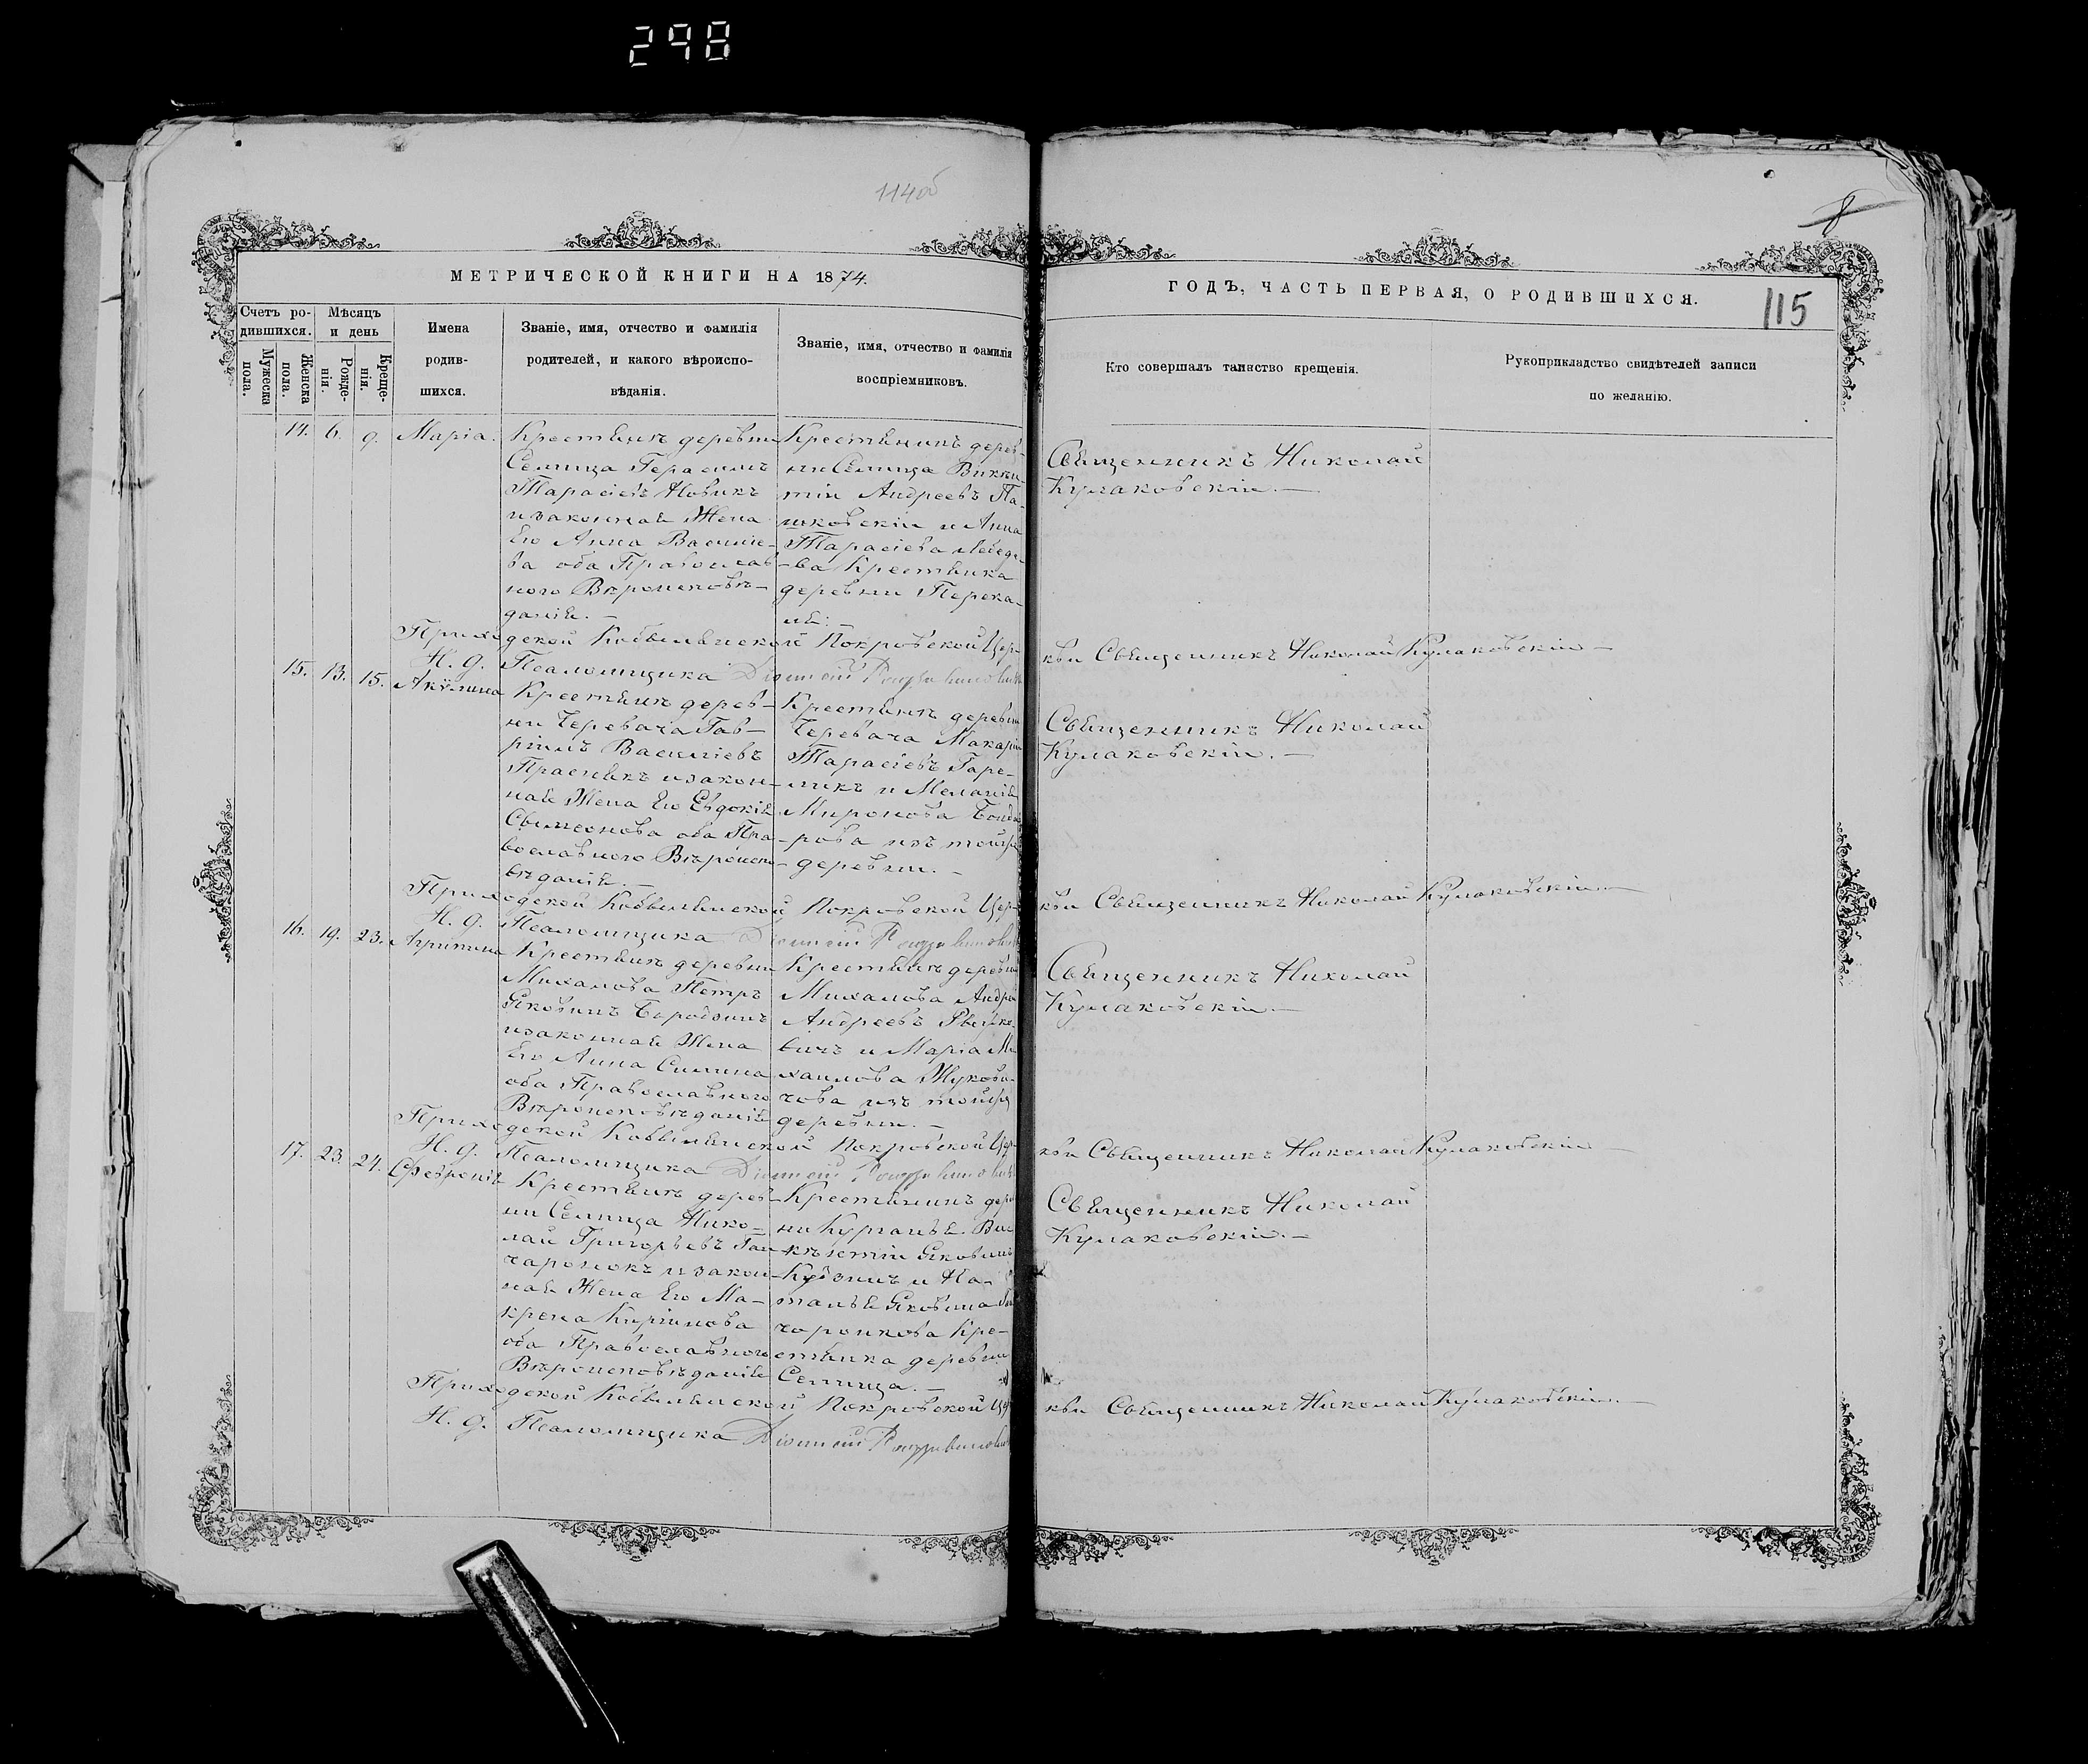 298
114об
8
МЕТРИЧЕСКОЙ КНИГИ НА 1874.
ГОДЪ, ЧАСТЬ ПЕРВАЯ, О РОДИВШИХСЯ.
115
Счетъ ро-
дившихся.
Мужеска
пола.
Женска
пола.
Мѣсяцъ
и день
Рожде-
нія.
Креще-
нія.
Имена
родив-
шихся.
Званіе, имя, отчество и фамилія
родителей, и какого вѣроиспо-
вѣданія.
Званіе, имя, отчество и фамилія
воспріемниковъ.
Кто совершалъ таинство крещенія.
Рукоприкладство свидѣтелей записи
по желанію.
14. 6. 9. Марія.
Крестьянъ деревни
Селища Герасимъ
Тарасіевъ Новикъ
и законная Жена
Его Анна Василіе-
ва оба Православ
ного Вѣроисповѣ-
данія. —
Крестьянинъ дерев-
ни Селища Викен-
тій Андреевъ Па-
шковскій и Анна
Тарасіева Лебеде-
-ва Крестьянка
деревни Перека-
лѣ: —
Священникъ Николай
Кулаковскій. —
Приходской Кобыльнской Покровской Цер-
кви Священникъ Николай Кулаковскій —
И. д. Псаломщика Діонисій
15. 13. 15. Акулина
Крестьянъ дерев-
ни Черевача Гав-
ріилъ Василіевъ
Прасникъ и закон-
ная Жена Его Евдокія
Свимеонова оба Пра
вославного Вѣроиспо
вѣданія. —
Крестьянъ деревни
Черевача Макарій
Тарасіевъ Гаре-
ликъ и Меланія
Миронова Бонда
-рова изъ тойже
деревни. —
Священникъ Николай
Кулаковскій. —
Приходской Кобыльнской Покровской Цер-
кви Священникъ Николай Кулаковскій —
И. д. Псаломщика Діонисій
16. 19. 23. Агрипина
Крестьянъ деревни
Михалова Петръ
Яковинъ Бородзичъ
и законная Жена
Его Анна Силина
оба Православного
Вѣроисповѣданія
Крестьянъ деревни
Михалова Андрей
Андреевъ
вичъ и Марія Ми
хаилова Жукови-
чова изъ тойже
деревни. —
Священникъ Николай
Кулаковскій. —
Приходской Кобыльнской Покровской Цер-
кви Священникъ Николай Кулаковскій —
И. д. Псаломщика Діонисій
17. 23. 24. Февронія
Крестьянъ дерев-
ни Селища Нико-
лай Григорьевъ Ган
чаронокъ и закон-
ная Жена Его Ма-
крена
оба Православного
Вѣроисповѣданія
Крестьянинъ дерев
ни Курганья Ви
кентій Яковинъ
и На-
талья Яковина Ган
чоронкова Кре-
стьянка деревни
Селища. —
Священникъ Николай
Кулаковскій. —
Приходской Кобыльнской Покровской Цер
кви Священникъ Николай Кулаковскій —
И. д. Псаломщика Діонисій